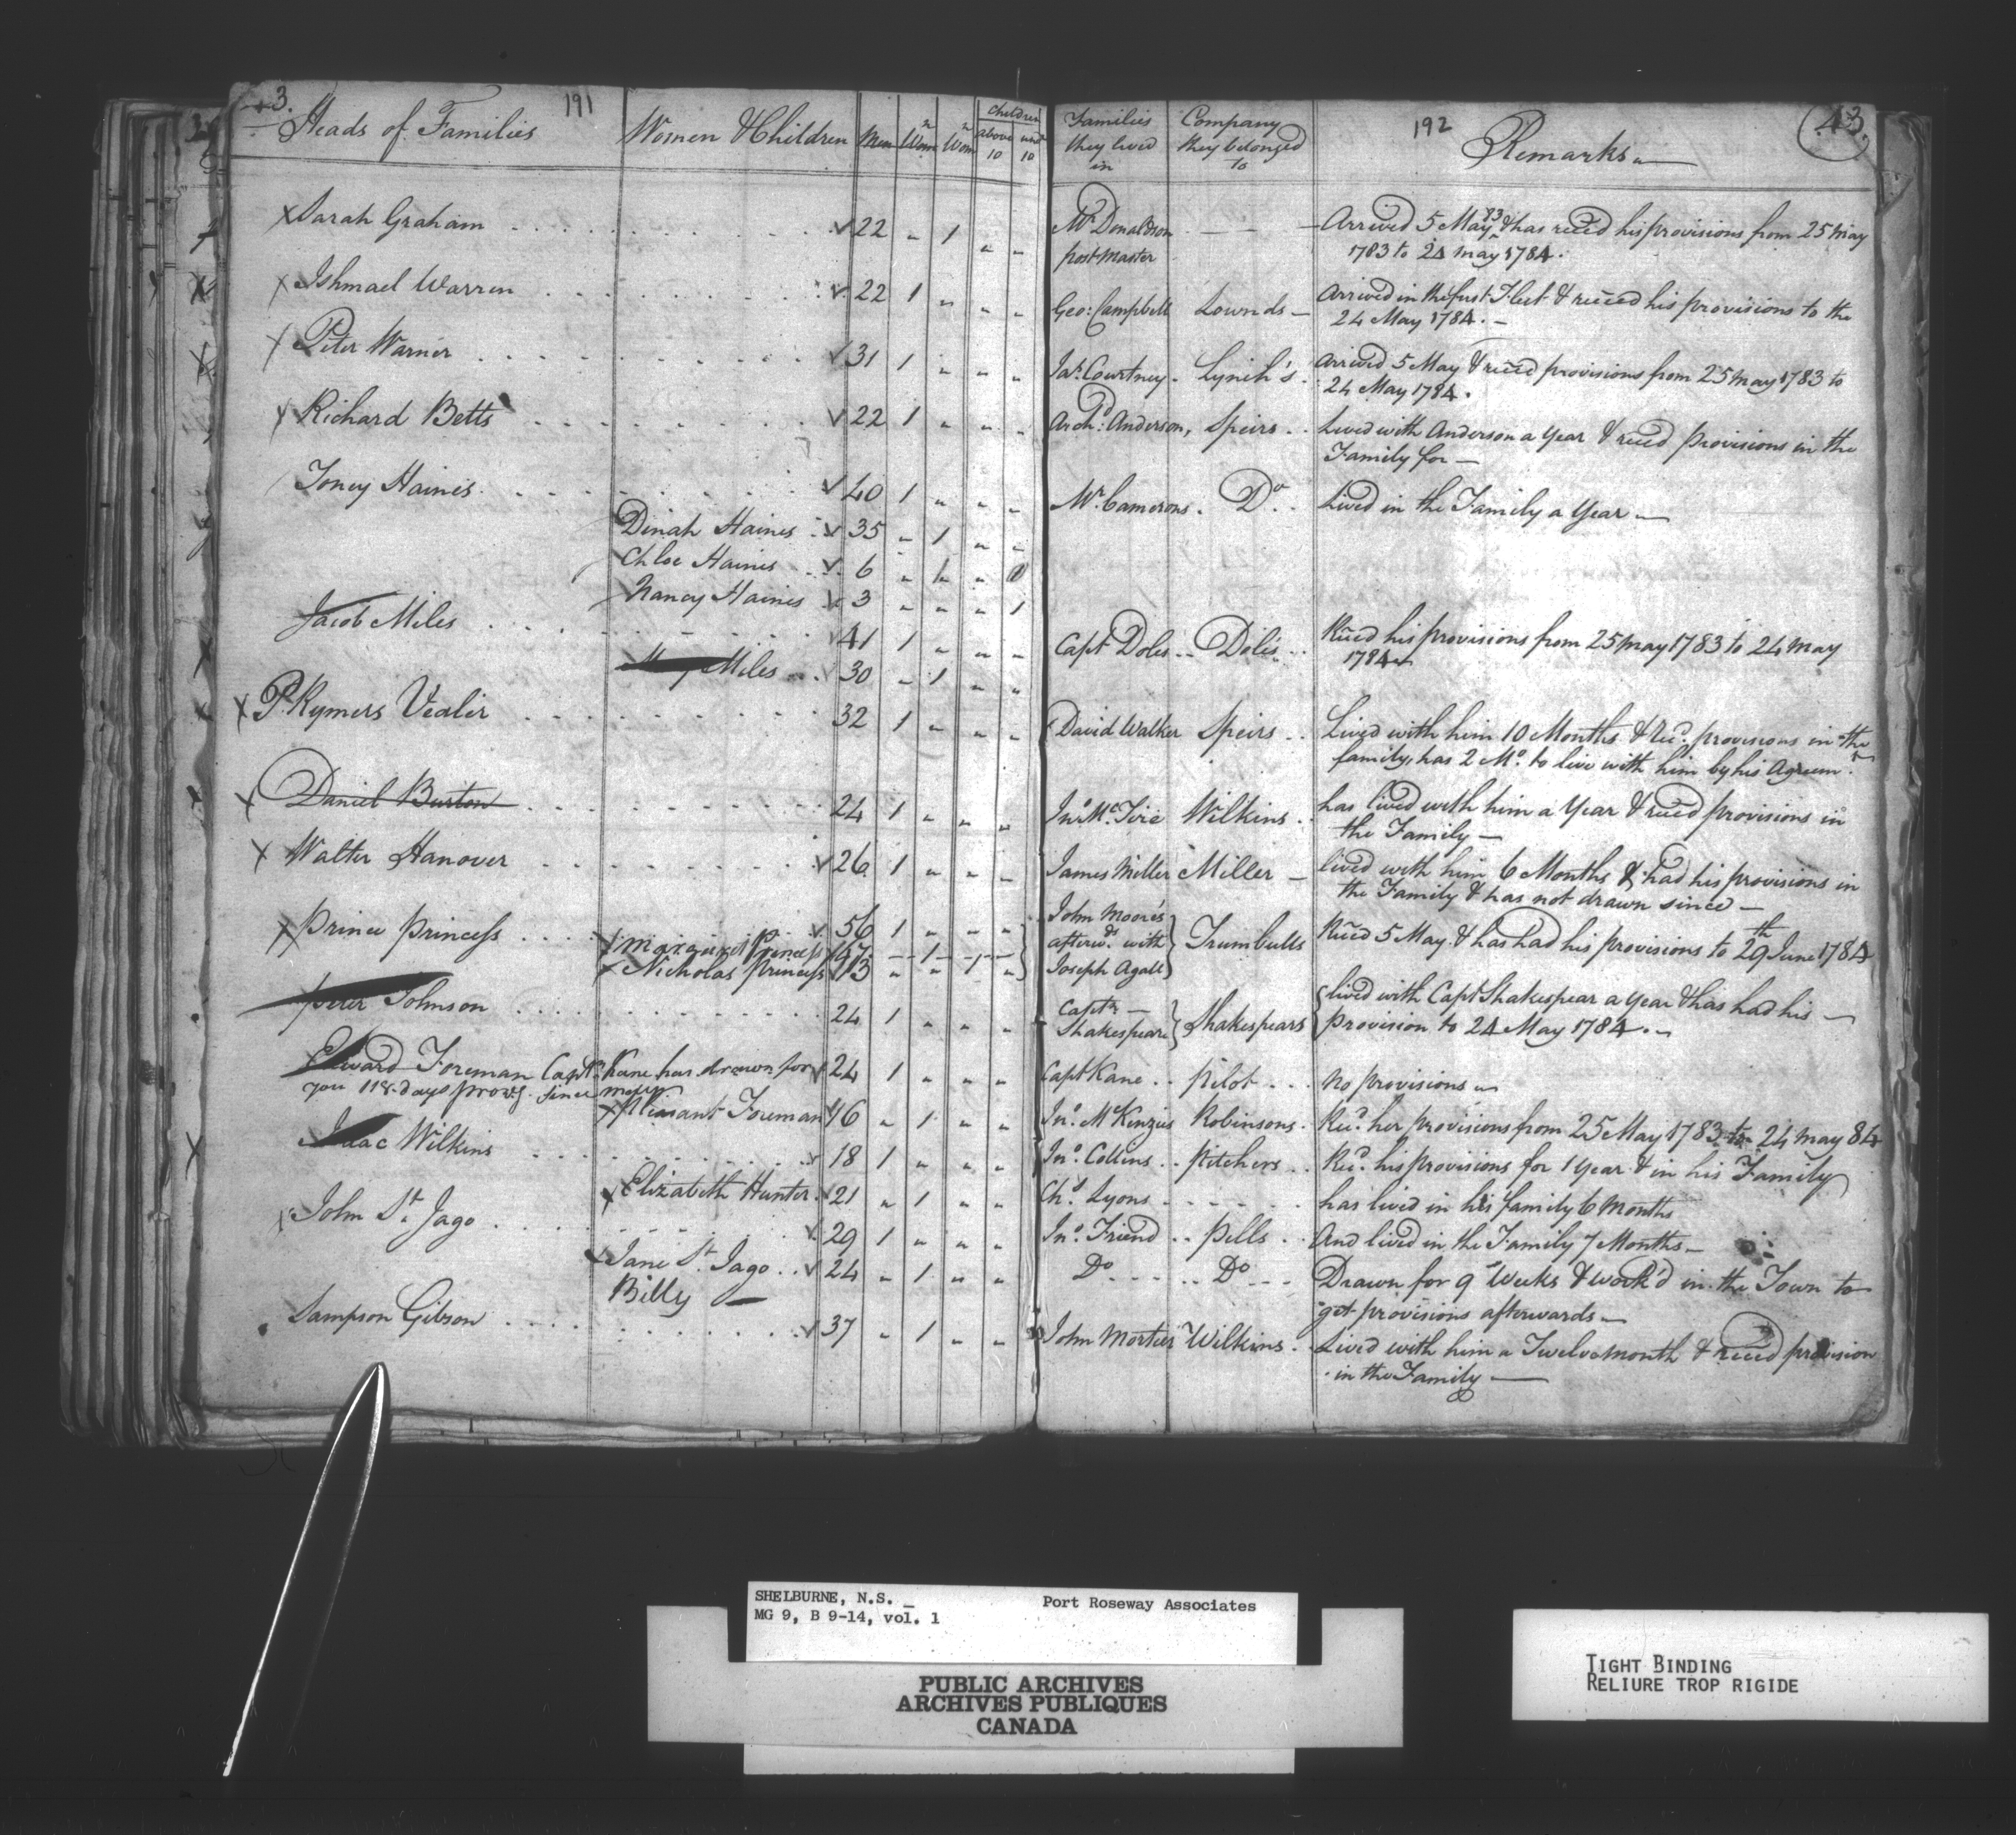 43. 191
Heads of Families Women & Children Men Wom Wom Children above 10 und 10
Families they lived in Company they belonged to 192 Remarks 43.
Sarah Graham 22 " 1 " " Mr Donaldson Arrived 5 May 83 & has reced his provisions from 25 May
post Master 1783 to 24 May 1784.
Ishmael Warren 22 1 " " " Geo: Campbell Lownds Arrived in the first Fleet & reced his provisions to the
24 May 1784.
Peter Warner 31 1 " " " Jas. Courtney Lynch's Arrived 5 May & reced provisions from 25 May 1783 to
24 May 1784.
Richard Betts 22 1 " " " Archd: Anderson, Speirs Lived with Anderson a Year & reced provisions in the
Family for
Toney Haines 40 1 " " " Mr. Camerons. Do. Lived in the Family a Year
Dinah Haines 35 " 1 " "
Chloe Haines 6 " 1 " 1
Nancy Haines 3 " " " 1
Jacob Miles 41 1 " " " Capt Doles Doles Reced his provisions from 25 May 1783 to 24 May
1784
Miles 30 " 1 " "
P. Rymers Vealer 32 1 " " " David Walker Speirs Lived with him 10 Months & Rec.d provisions in the
family, has 2 Mo. to live with him by his Agreem.t
Daniel Burton 24 1 " " " Jno McTire Wilkins has lived with him a Year & reced provisions in
the Family
Walter Hanover 26 1 " " " James Miller Miller lived with him 6 Months & had his provisions in
the Family & has not drawn since
Prince Princess 56 1 " " " John Moore's Trumbulls Reced 5 May & has had his provisions to 29th June 1784
Margaret Princess 47 " 1 " " afterwds. with
Nicholas Princess 13 " " 1 " Joseph Agall
Peter Johnson 24 1 " " " Captn Shakespear Shakespears lived with Capt Shakespear a Year & has had his
provision to 24 May 1784.
Edward Foreman Captn Kane has drawn for 24 1 " " " Capt Kane Pilot no provisions
you 118 days provs. since
Pleasant Foreman 46 " 1 " " Jno. McKenzies Robinsons. Rec.d her provisions from 25 May 1783 to 24 May 84
Isaac Wilkins 18 1 " " " Jno. Collins Pitchers Rec.d his provisions for 1 Year & in his Family
Elizabeth Hunter 21 " 1 " " Chs. Lyons has lived in his family 6 Months
John St. Jago 29 1 " " " Jno. Friend Pells And lived in the Family 7 Months
Jane St. Jago 24 " 1 " " Do Do Drawn for 9 Weeks & work'd in the Town to
Billy get provisions afterwards
Sampson Gibson 37 " 1 " " John Mortier Wilkins Lived with him a Twelvemonth & reced provision
in the Family
SHELBURNE, N.S. Port Roseway Associates
MG 9, B 9-14, vol. 1
PUBLIC ARCHIVES
ARCHIVES PUBLIQUES
CANADA
TIGHT BINDING
RELIURE TROP RIGIDE